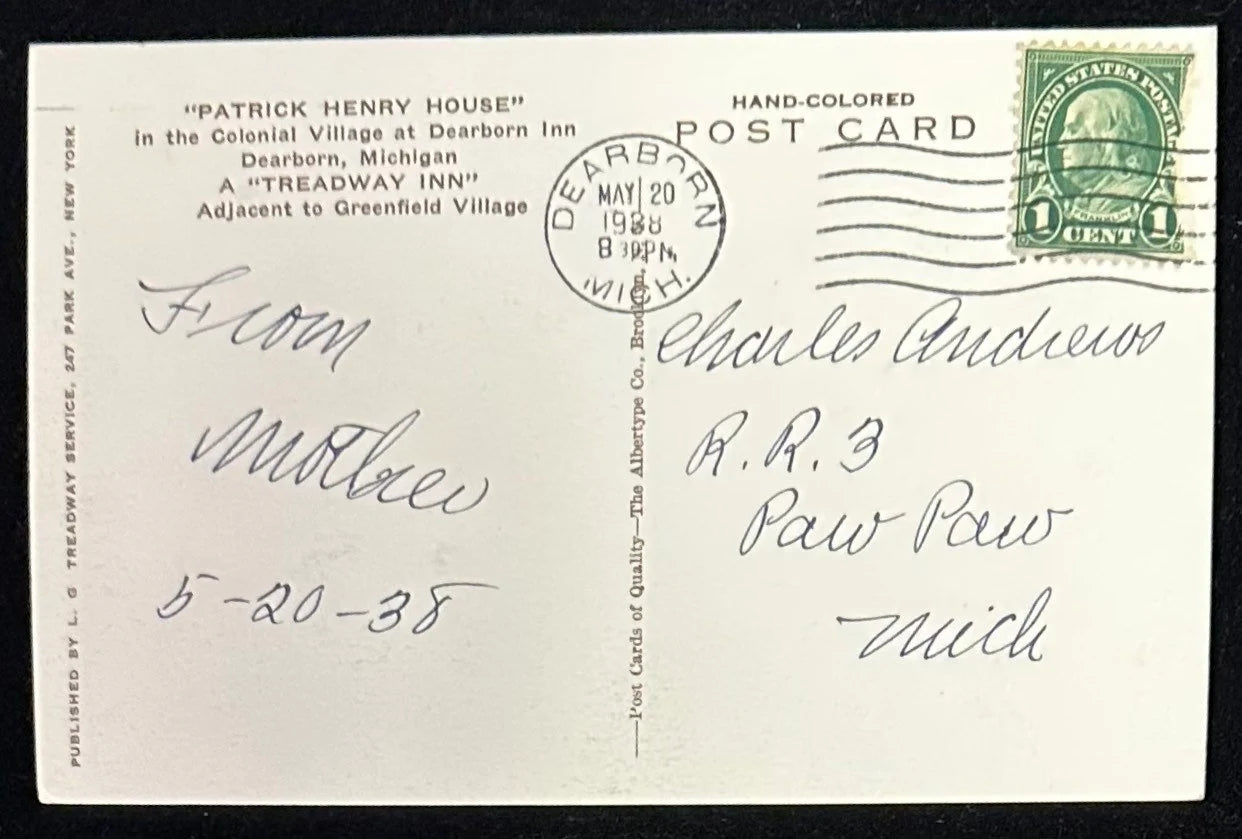 "PATRICK HENRY HOUSE"
in the Colonial Village at Dearborn Inn
Dearborn, Michigan
A "TREADWAY INN"
Adjacent to Greenfield Village
HAND-COLORED
POST CARD
DEARBORN
MAY 20
1938
8 30 PM
MICH.
UNITED STATES POSTAGE
FRANKLIN
1 CENT 1
From
Mother
5-20-38
Charles Andrews
R. R. 3
Paw Paw
Mich
PUBLISHED BY L. G TREADWAY SERVICE, 247 PARK AVE., NEW YORK
—Post Cards of Quality—The Albertype Co., Brooklyn,